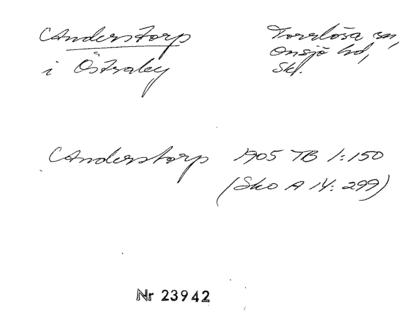 Anderstorp
i Östraby
Torrlösa sn,
Onsjö hd,
Skl.
Anderstorp 1905 TB 1:150
(Sko A 14: 299)
Nr 23942